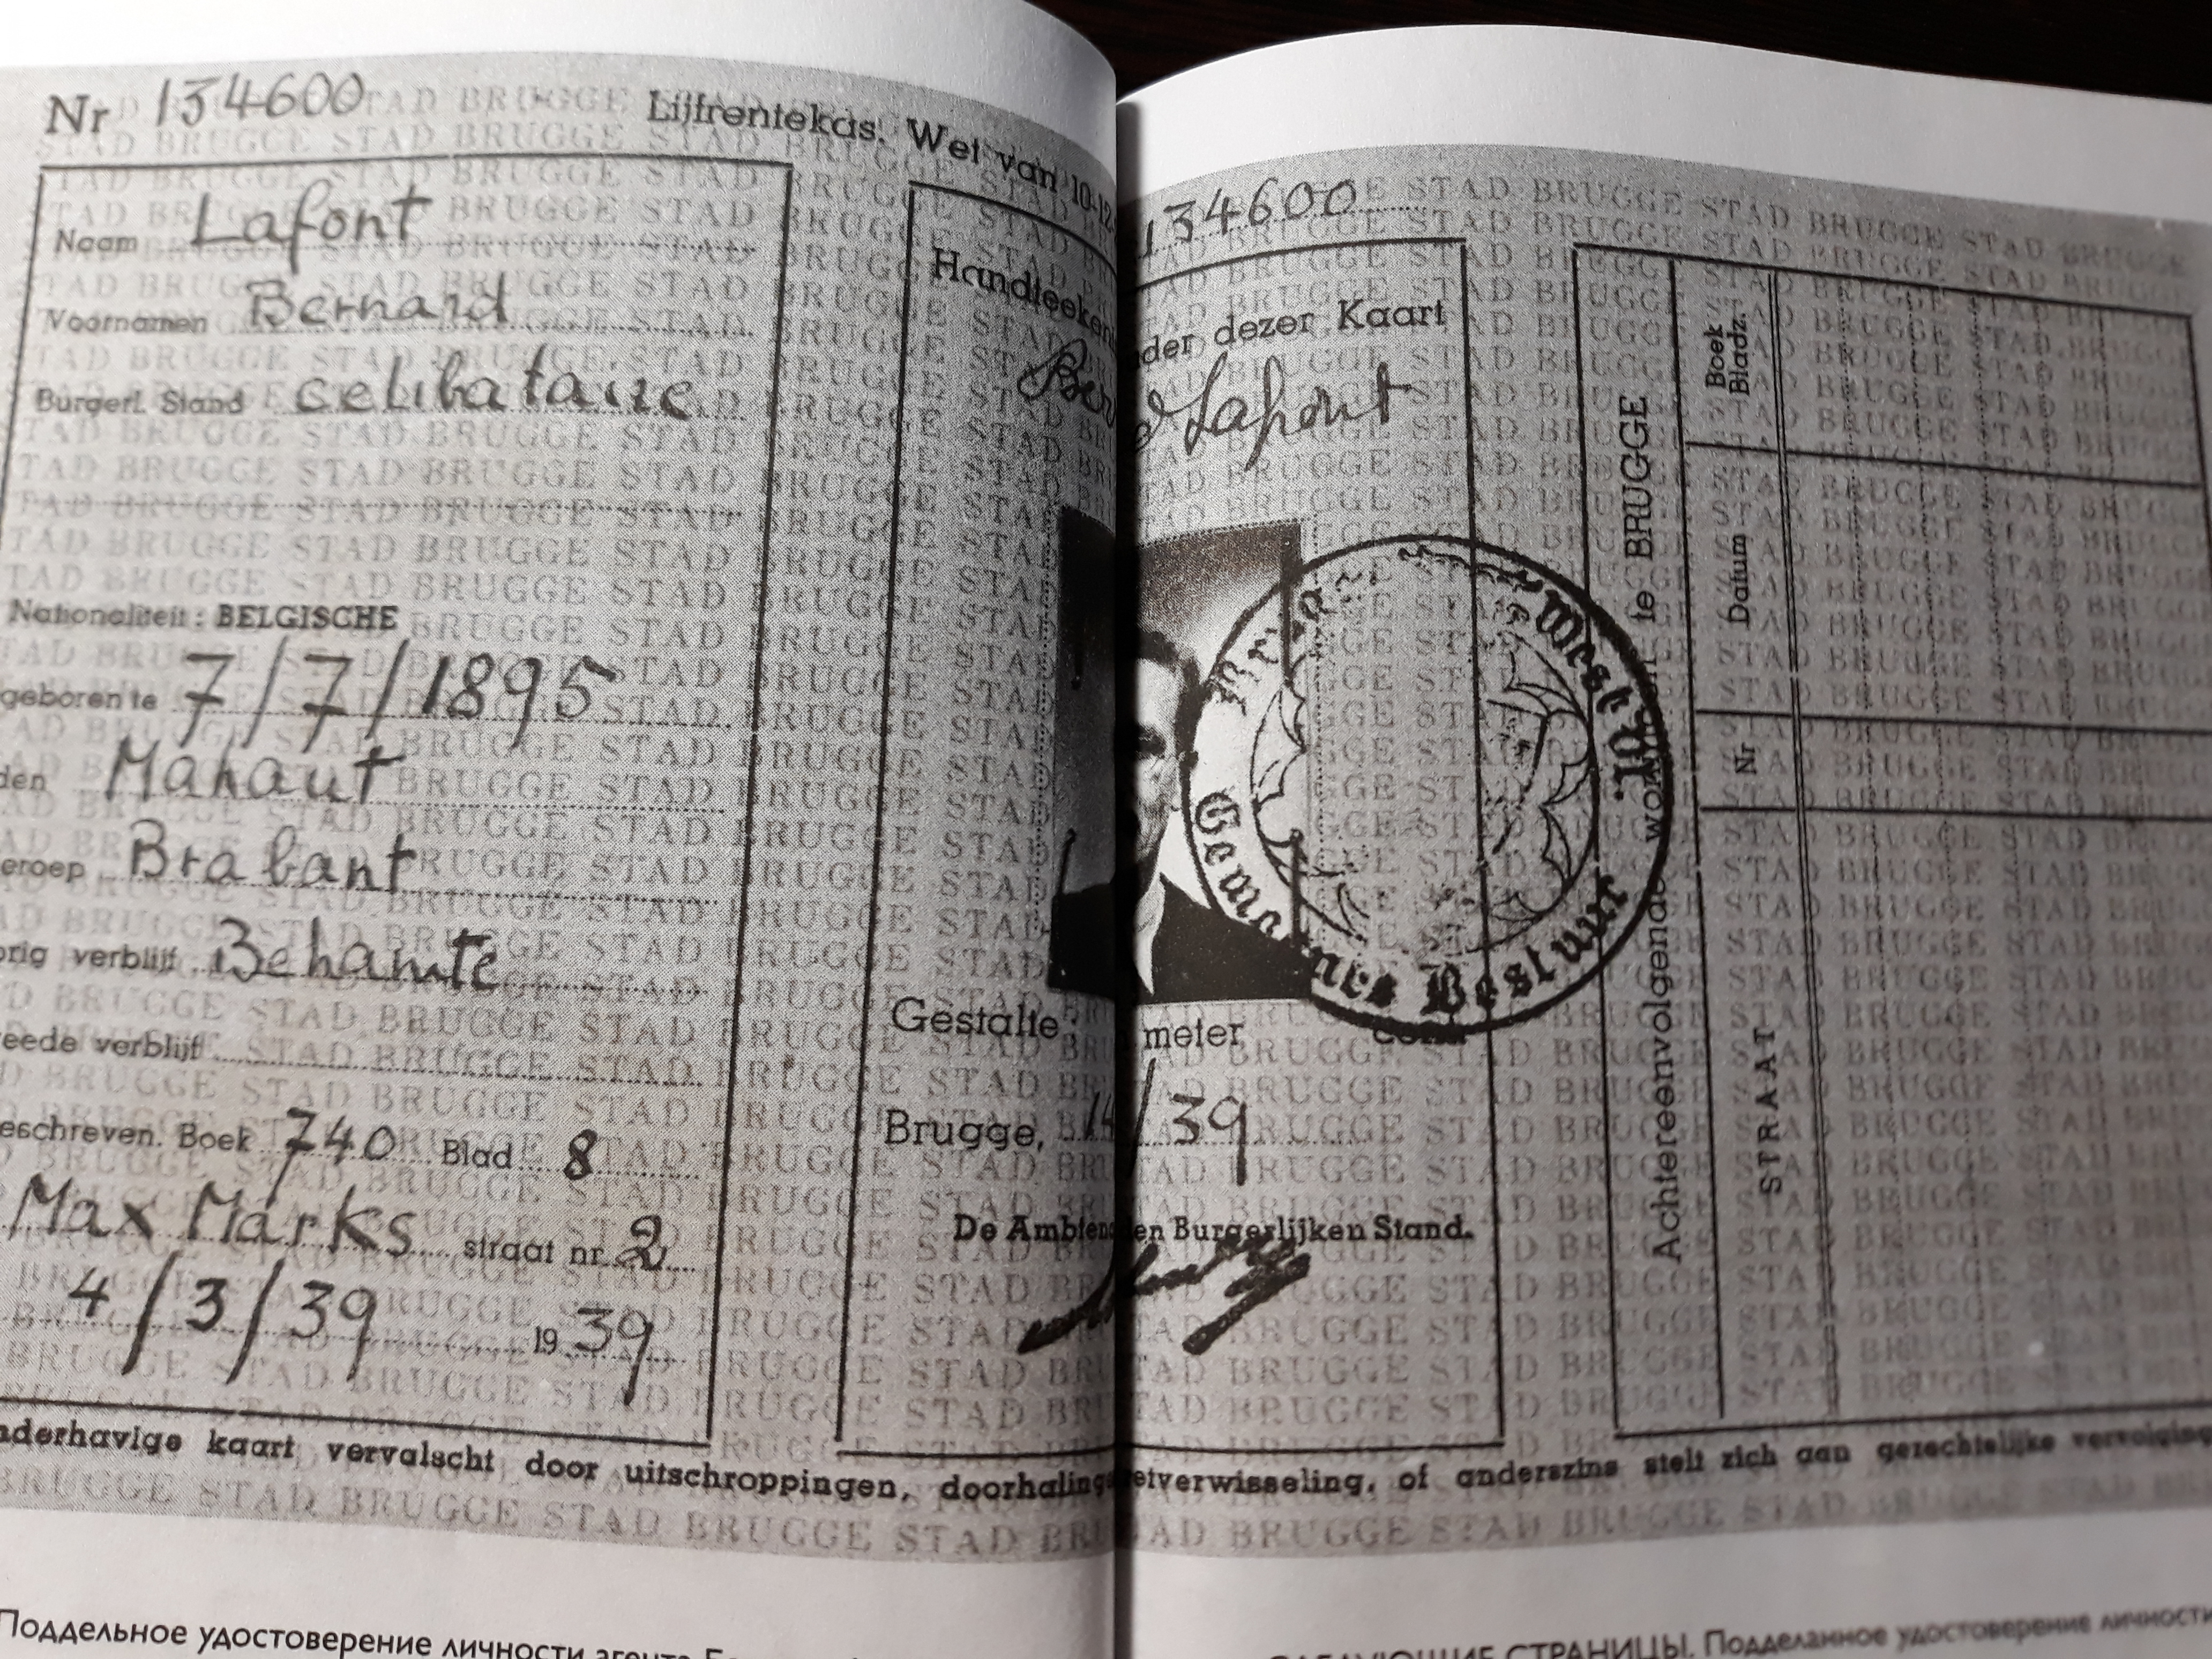 Nr 134600
Lijfrentekas. Wet van 10-12-
Naam Lafont
Voornamen Bernard
Burgerl. Stand celibataire
Nationaliteit : BELGISCHE
geboren te 7/7/1895
den Mahaut
eroep Brabant
orig verblijf Behamte
eede verblijf
eschreven. Boek 740 Blad 8
Max Marks straat nr 2
4/3/39 1939
134600
Handteeken
der dezer Kaart
Ber
Lafont
West
Gemeentes Bestuur
Gestalte :
meter
cent
Brugge, 14/39
De Ambten
en Burgerlijken Stand.
Achtereenvolgende
te BRUGGE
Boek
Bladz.
Datum
Nr
STRAAT
nderhavige kaart vervalscht door uitschroppingen, doorhaling
etverwisseling, of anderszins stelt zich aan gerechtelijke vervolging
STAD BRUGGE STAD BRUGGE STAD BRUGGE STAD
Поддельное удостоверение личности агента
СТРАНИЦЫ. Подделанное удостоверение личности